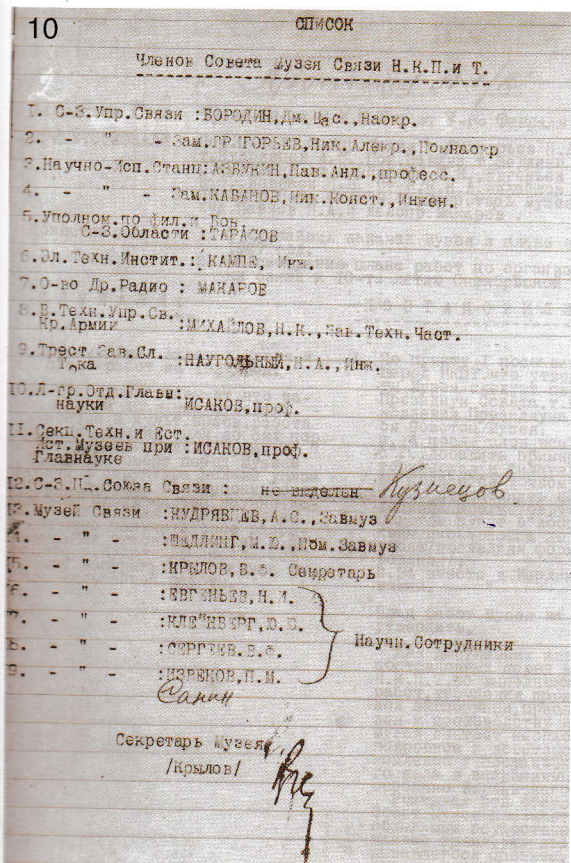 10
СПИСОК
Членов Совета Музея Связи Н.К.П.и Т.
1. С-З.Упр.Связи :БОРОДИН,Дм.Вас.,Наокр.
2. - " - Зам.ГРИГОРЬЕВ,Ник.Алекр.,Помнаокр
3.Научно-Исп.Станц:АЗБУКИН,Пав.Анд.,професс.
4. - " - Зам.КАБАНОВ,Ник.Конст.,Инжен.
5.Уполном.по фил.и Бон.
С-З.Области :ТАРАСОВ
6.Эл.Техн.Инстит.: КАМПЕ, Инж.
7.О-во Др.Радио : МАКАРОВ
8.В.Техн.Упр.Св.
Кр.Армии :МИХАЙЛОВ,Н.К.,Зав.Техн.Част.
9.Трест Зав.Сл.
Тока :НАУГОЛЬНЫЙ,Н.А.,Инж.
10.Л-гр.Отд.Главн:
науки ИСАКОВ,проф.
11.Секц.Техн.и Ест.
Ист.Музеев при :ИСАКОВ,проф.
Главнауке
12.С-З. Союза Связи : не выделен Кузнецов
13.Музей Связи :КУДРЯВЦЕВ,А.С.,Завмуз
4. - " - :ШЕДЛИНГ,М.Ю.,Пом.Завмуз
5. - " - :КРЫЛОВ,В.Ф. Секретарь
6. - " - :ЕВГЕНЬЕВ,Н.И.
7. - " - :КЛЕЙНБЕРГ,Ю.Ю.
Научн.Сотрудники
8. - " - :СЕРГЕЕВ,В.Ф.
9. - " - :ИЗРЕКОВ,П.М.
Санин
Секретарь Музея
/Крылов/